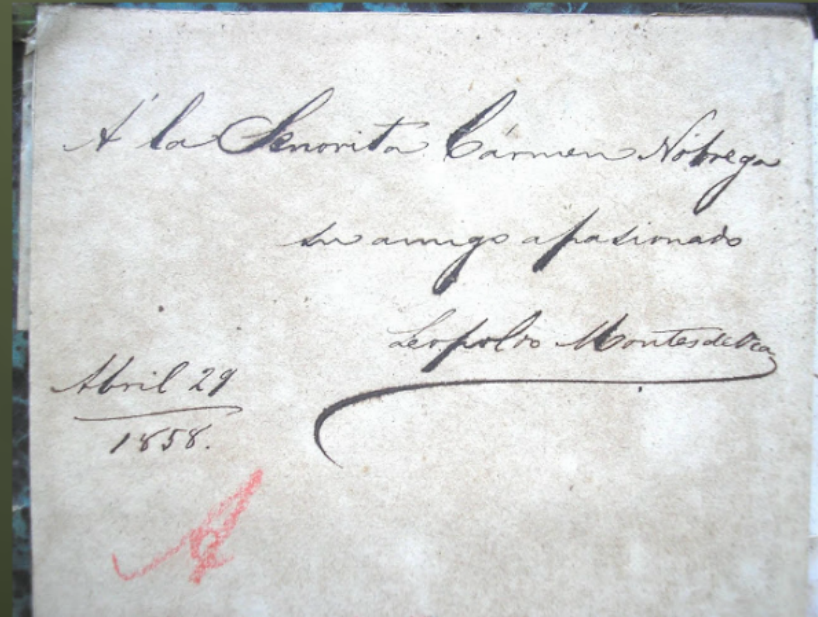 Á la Señorita Cármen Nóbrega
su amigo apasionado
Leopoldo Montesdeoca
Abril 29
1858.